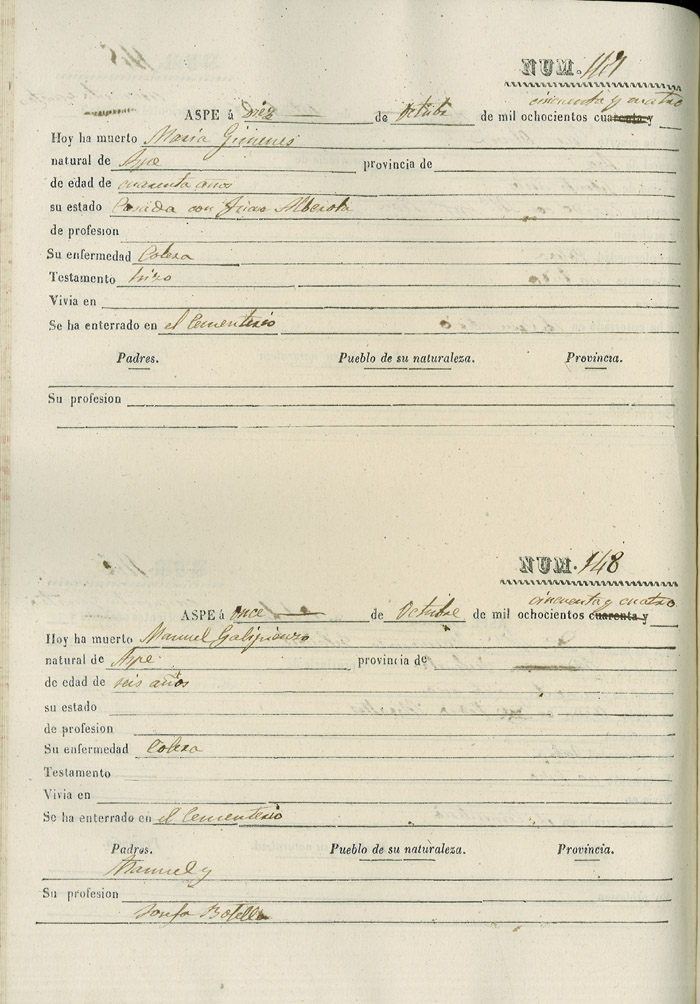 NUM. 147
cincuenta y cuatro
ASPE á Diez de Octubre de mil ochocientos cuarenta y
Hoy ha muerto Maria Gimenes
natural de Aspe provincia de
de edad de cuarenta años
su estado Casada con Alberola
de profesion
Su enfermedad Colera
Testamento hizo
Vivia en
Se ha enterrado en el Cementerio
Padres. Pueblo de su naturaleza. Provincia.
Su profesion
NUM. 148
cincuenta y cuatro
ASPE á once de Octubre de mil ochocientos cuarenta y
Hoy ha muerto Manuel Galipienzo
natural de Aspe provincia de
de edad de seis años
su estado
de profesion
Su enfermedad Colera
Testamento
Vivia en
Se ha enterrado en el Cementerio
Padres. Pueblo de su naturaleza. Provincia.
Manuel y
Su profesion
Josefa Botella